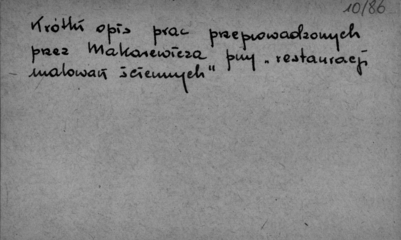 10/86
Krótki opis prac przeprowadzonych
przez Makarewicza przy „restauracji
malowań ściennych"